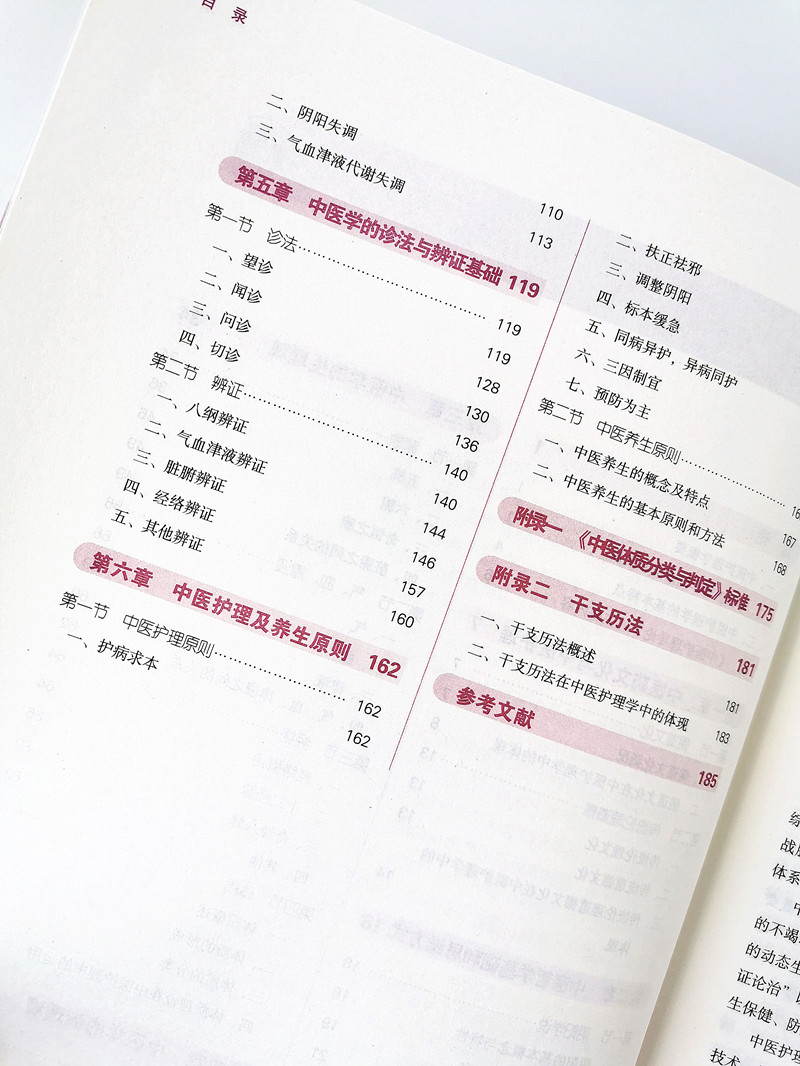 目 录
二、阴阳失调 110
三、气血津液代谢失调 113
第五章 中医学的诊法与辨证基础 119
第一节 诊法 119
一、望诊 119
二、闻诊 128
三、问诊 130
四、切诊 136
第二节 辨证 140
一、八纲辨证 140
二、气血津液辨证 144
三、脏腑辨证 146
四、经络辨证 157
五、其他辨证 160
第六章 中医护理及养生原则 162
第一节 中医护理原则 162
一、护病求本 162
二、扶正祛邪
三、调整阴阳
四、标本缓急
五、同病异护，异病同护
六、三因制宜
七、预防为主
第二节 中医养生原则
一、中医养生的概念及特点 167
二、中医养生的基本原则和方法 168
附录一 《中医体质分类与判定》标准 175
附录二 干支历法 181
一、干支历法概述 181
二、干支历法在中医护理学中的体现 183
参考文献 185
体系
的不竭
的动态生
证论治”
生保健、防
中医护理
技术、